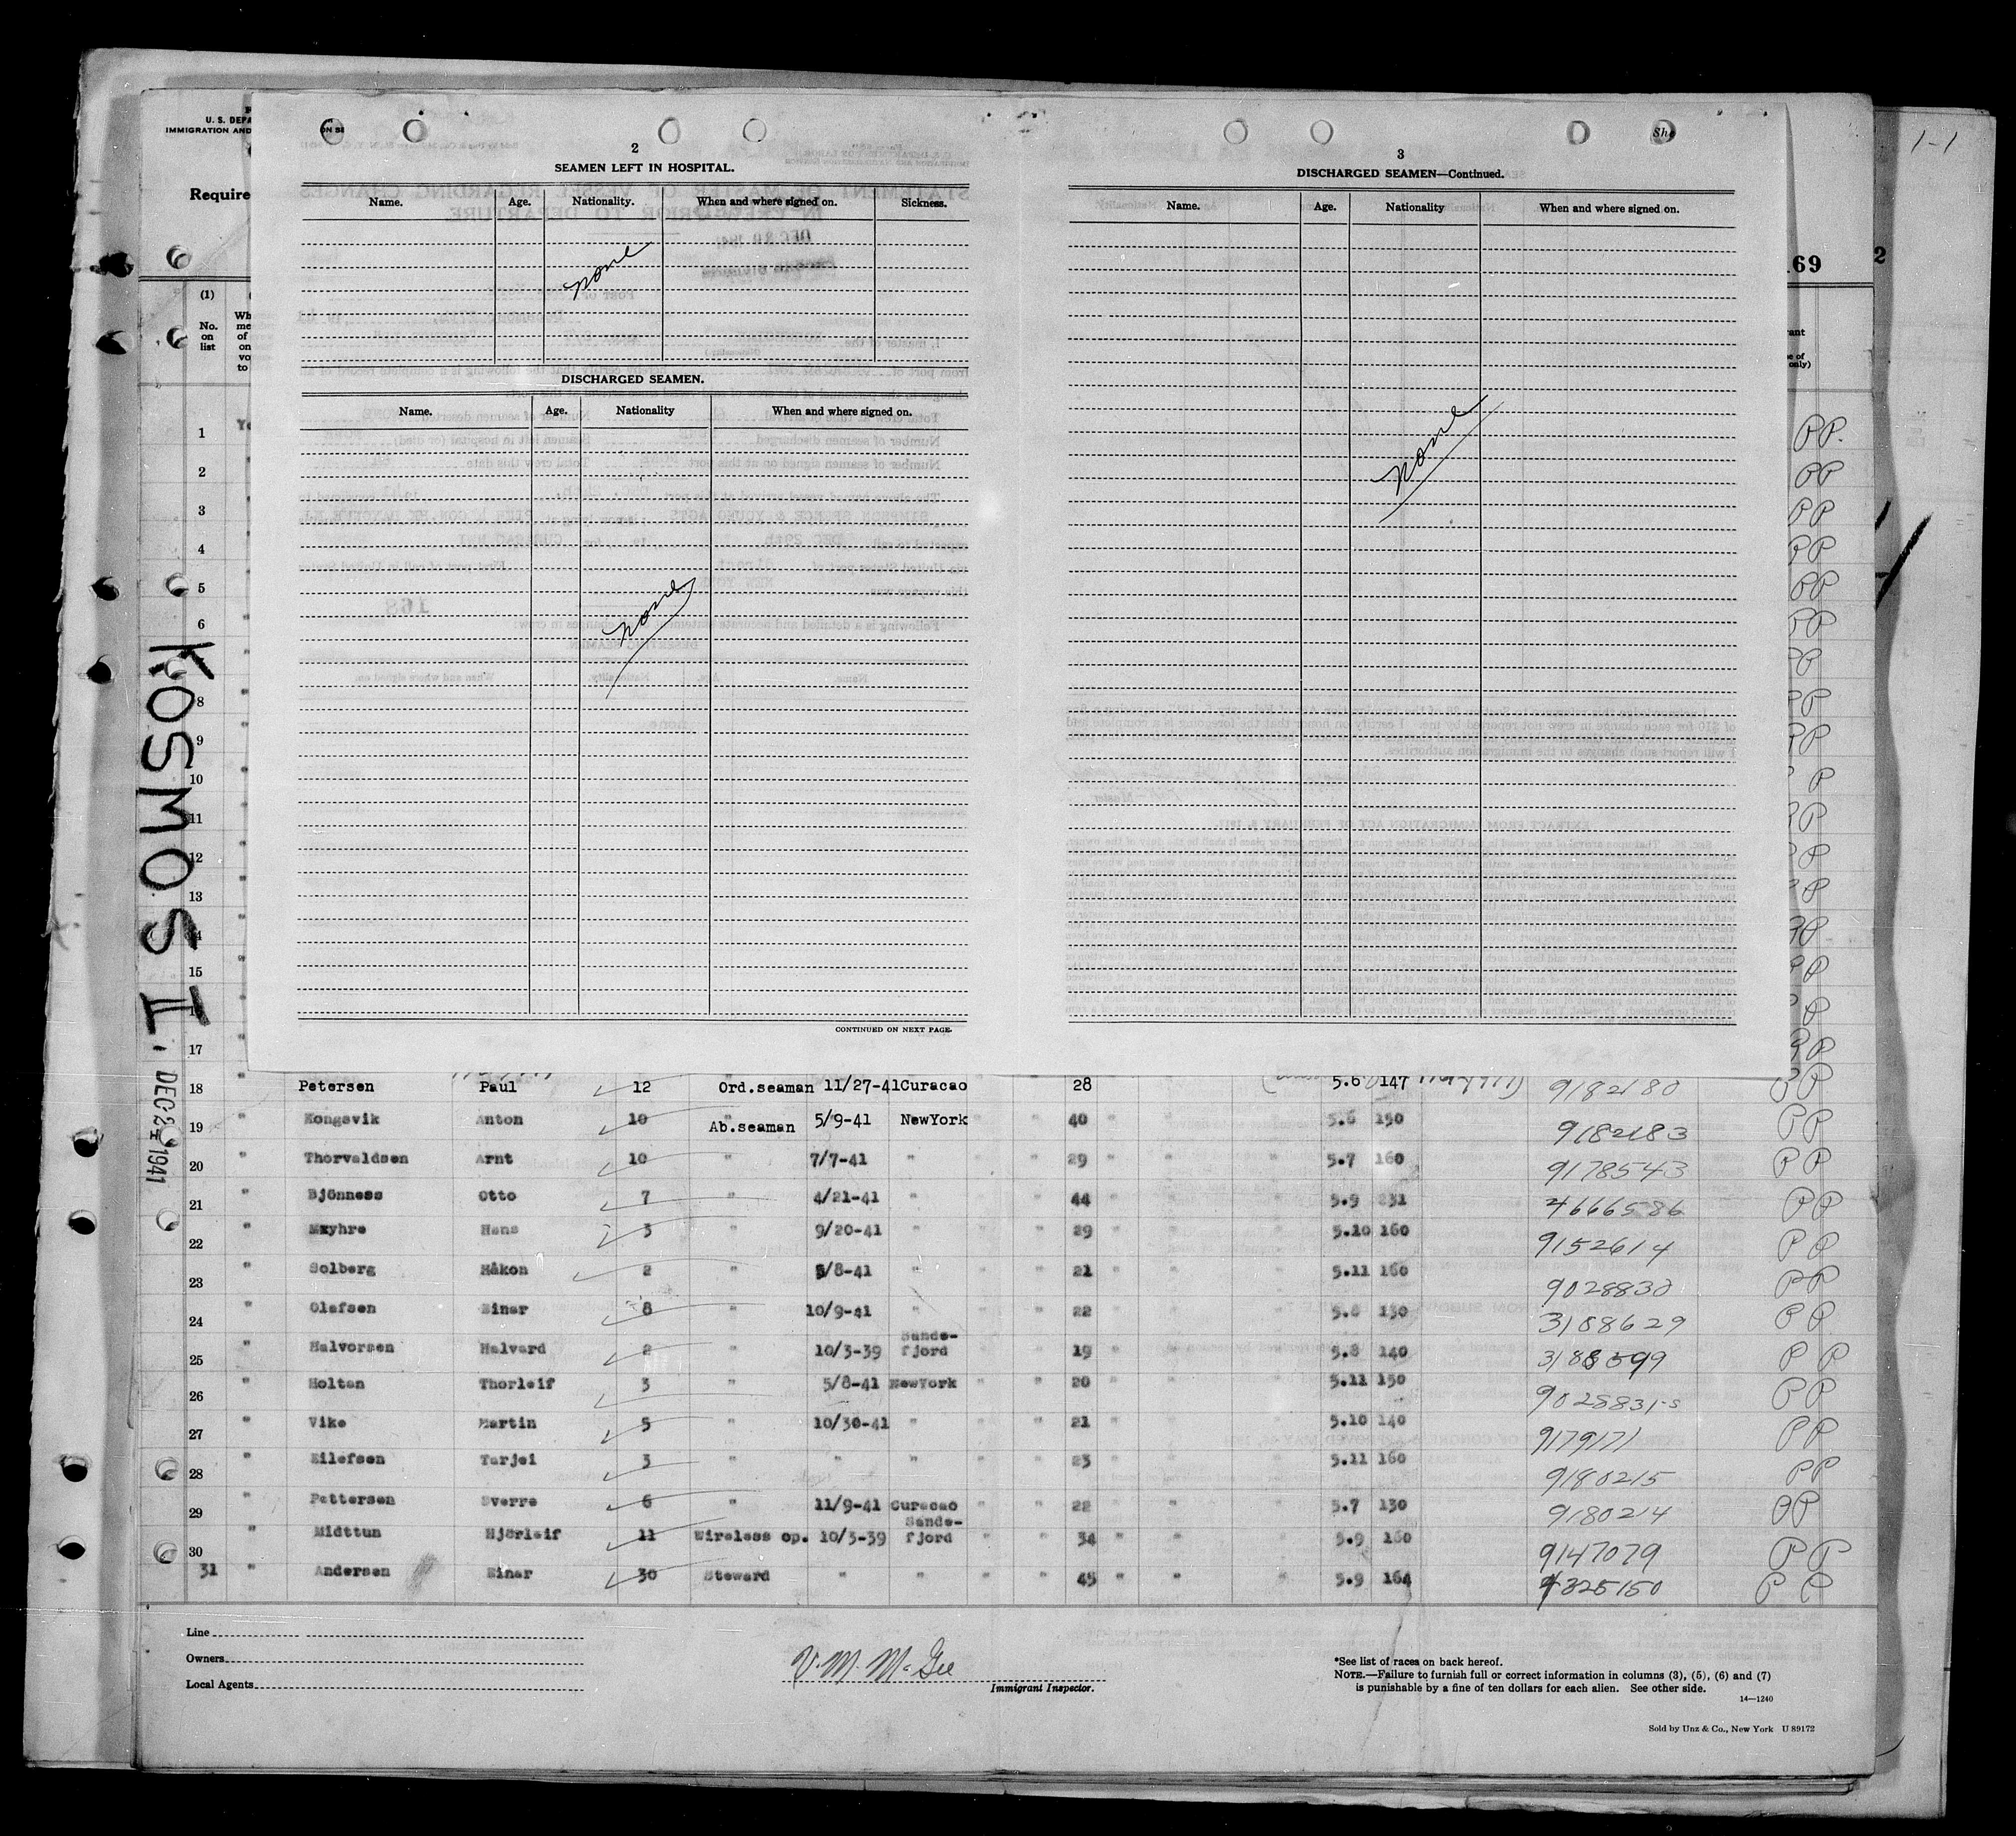 U. S. DEPA
IMMIGRATION AND
Require
ON SE
2
SEAMEN LEFT IN HOSPITAL.
Name. Age. Nationality. When and where signed on. Sickness.
none
DISCHARGED SEAMEN.
Name. Age. Nationality When and where signed on.
none
CONTINUED ON NEXT PAGE.
She
3
DISCHARGED SEAMEN—Continued.
Name. Age. Nationality When and where signed on.
none
169
2
1-1
(1)
No. on list
KOSMOS II.
DEC 24 1941
1
2
3
4
5
6
8
9
10
11
12
13
14
15
17
18 Petersen Paul 12 Ord.seaman 11/27-41 Curacao 28 5.6 147 9182180 PP
19 " Kongsvik Anton 10 " Ab.seaman 5/9-41 NewYork " " 40 5.6 150 9182183 PP
20 " Thorvaldsen Arnt 10 " 7/7-41 " " " 29 " " " 5.7 160 9178543 PP
21 " Bjönness Otto 7 " 4/21-41 " " " 44 " " " 5.9 231 4666586 PP
22 " Myhre Hans 3 " 9/20-41 " " " 29 " " " 5.10 160 9152614 PP
23 " Solberg Håkon 2 " 5/8-41 " " " 21 " " " 5.11 160 9028830 PP
24 " Olafsen Einar 8 " 10/9-41 " " " 22 " " " 5.8 130 3188629 PP
25 " Halvorsen Halvard 2 " 10/3-39 Sande-fjord " " 19 " " " 5.8 140 3188599 PP
26 " Holtan Thorleif 3 " 5/8-41 NewYork " " 20 " " " 5.11 150 9028831-s PP
27 " Vike Martin 5 " 10/30-41 " " " 21 " " " 5.10 140 9179171 PP
28 " Eilefsen Tarjei 3 " " " " " 23 " " " 5.11 160 9180215 PP
29 " Pettersen Sverre 6 " 11/9-41 Curacao " " 22 " " " 5.7 130 9180214 PP
30 " Midttun Hjörleif 11 Wireless op. 10/3-39 Sande-fjord " " 34 " " " 5.9 160 9147079 PP
31 " Andersen Einar 30 Steward " " " " 45 " " " 5.9 164 4325150 PP
Line
Owners
Local Agents
V. M. McGee
Immigrant Inspector.
*See list of races on back hereof.
NOTE.—Failure to furnish full or correct information in columns (3), (5), (6) and (7)
is punishable by a fine of ten dollars for each alien. See other side.
14—1240
Sold by Unz & Co., New York U 89172